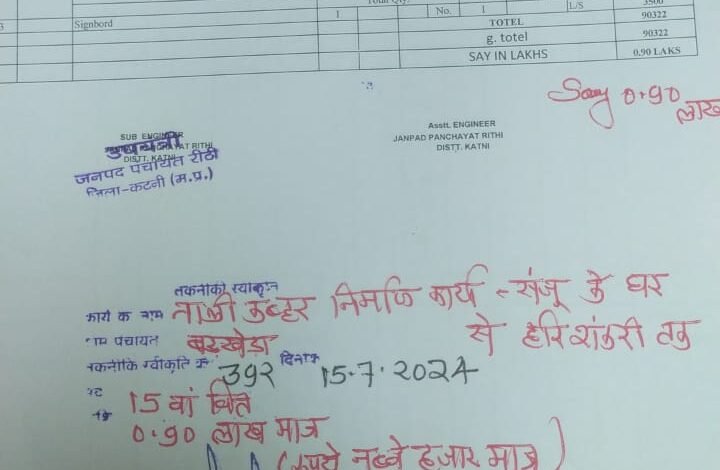 Total Qty.
3500
3 Signbord 1 No. 1 L/S 90322
TOTEL
g. totel 90322
SAY IN LAKHS 0.90 LAKS
Say 0.90
लाख
SUB ENGINEER
उपयंत्री
DISTT. KATNI
जनपद पंचायत रीठी
जिला-कटनी (म.प्र.)
Asstt. ENGINEER
JANPAD PANCHAYAT RITHI
DISTT. KATNI
तकनीकी स्वीकृत
कार्य क नाम नाली कव्हर निर्माण कार्य - संजू के घर
से हरिशंकरी तक
पंचायत बरखेडा
स्वीकृति क्र 392 दिनांक 15.7.2024
15 वां वित्त
0.90 लाख मात्र
(रूपये नब्बे हजार मात्र)